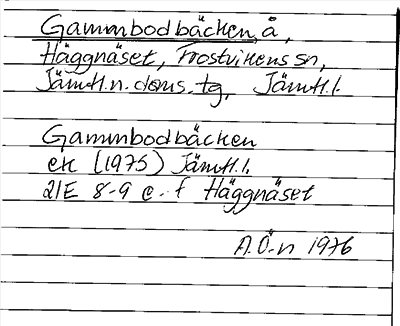 Gammbodbäcken, å,
Häggnäset, Frostvikens sn,
Jämtl. n. doms. tg, Jämtl. l.
Gammbodbäcken
ek (1975) Jämtl. l.
21E 8-9 e-f Häggnäset
A.Ö-n 1976